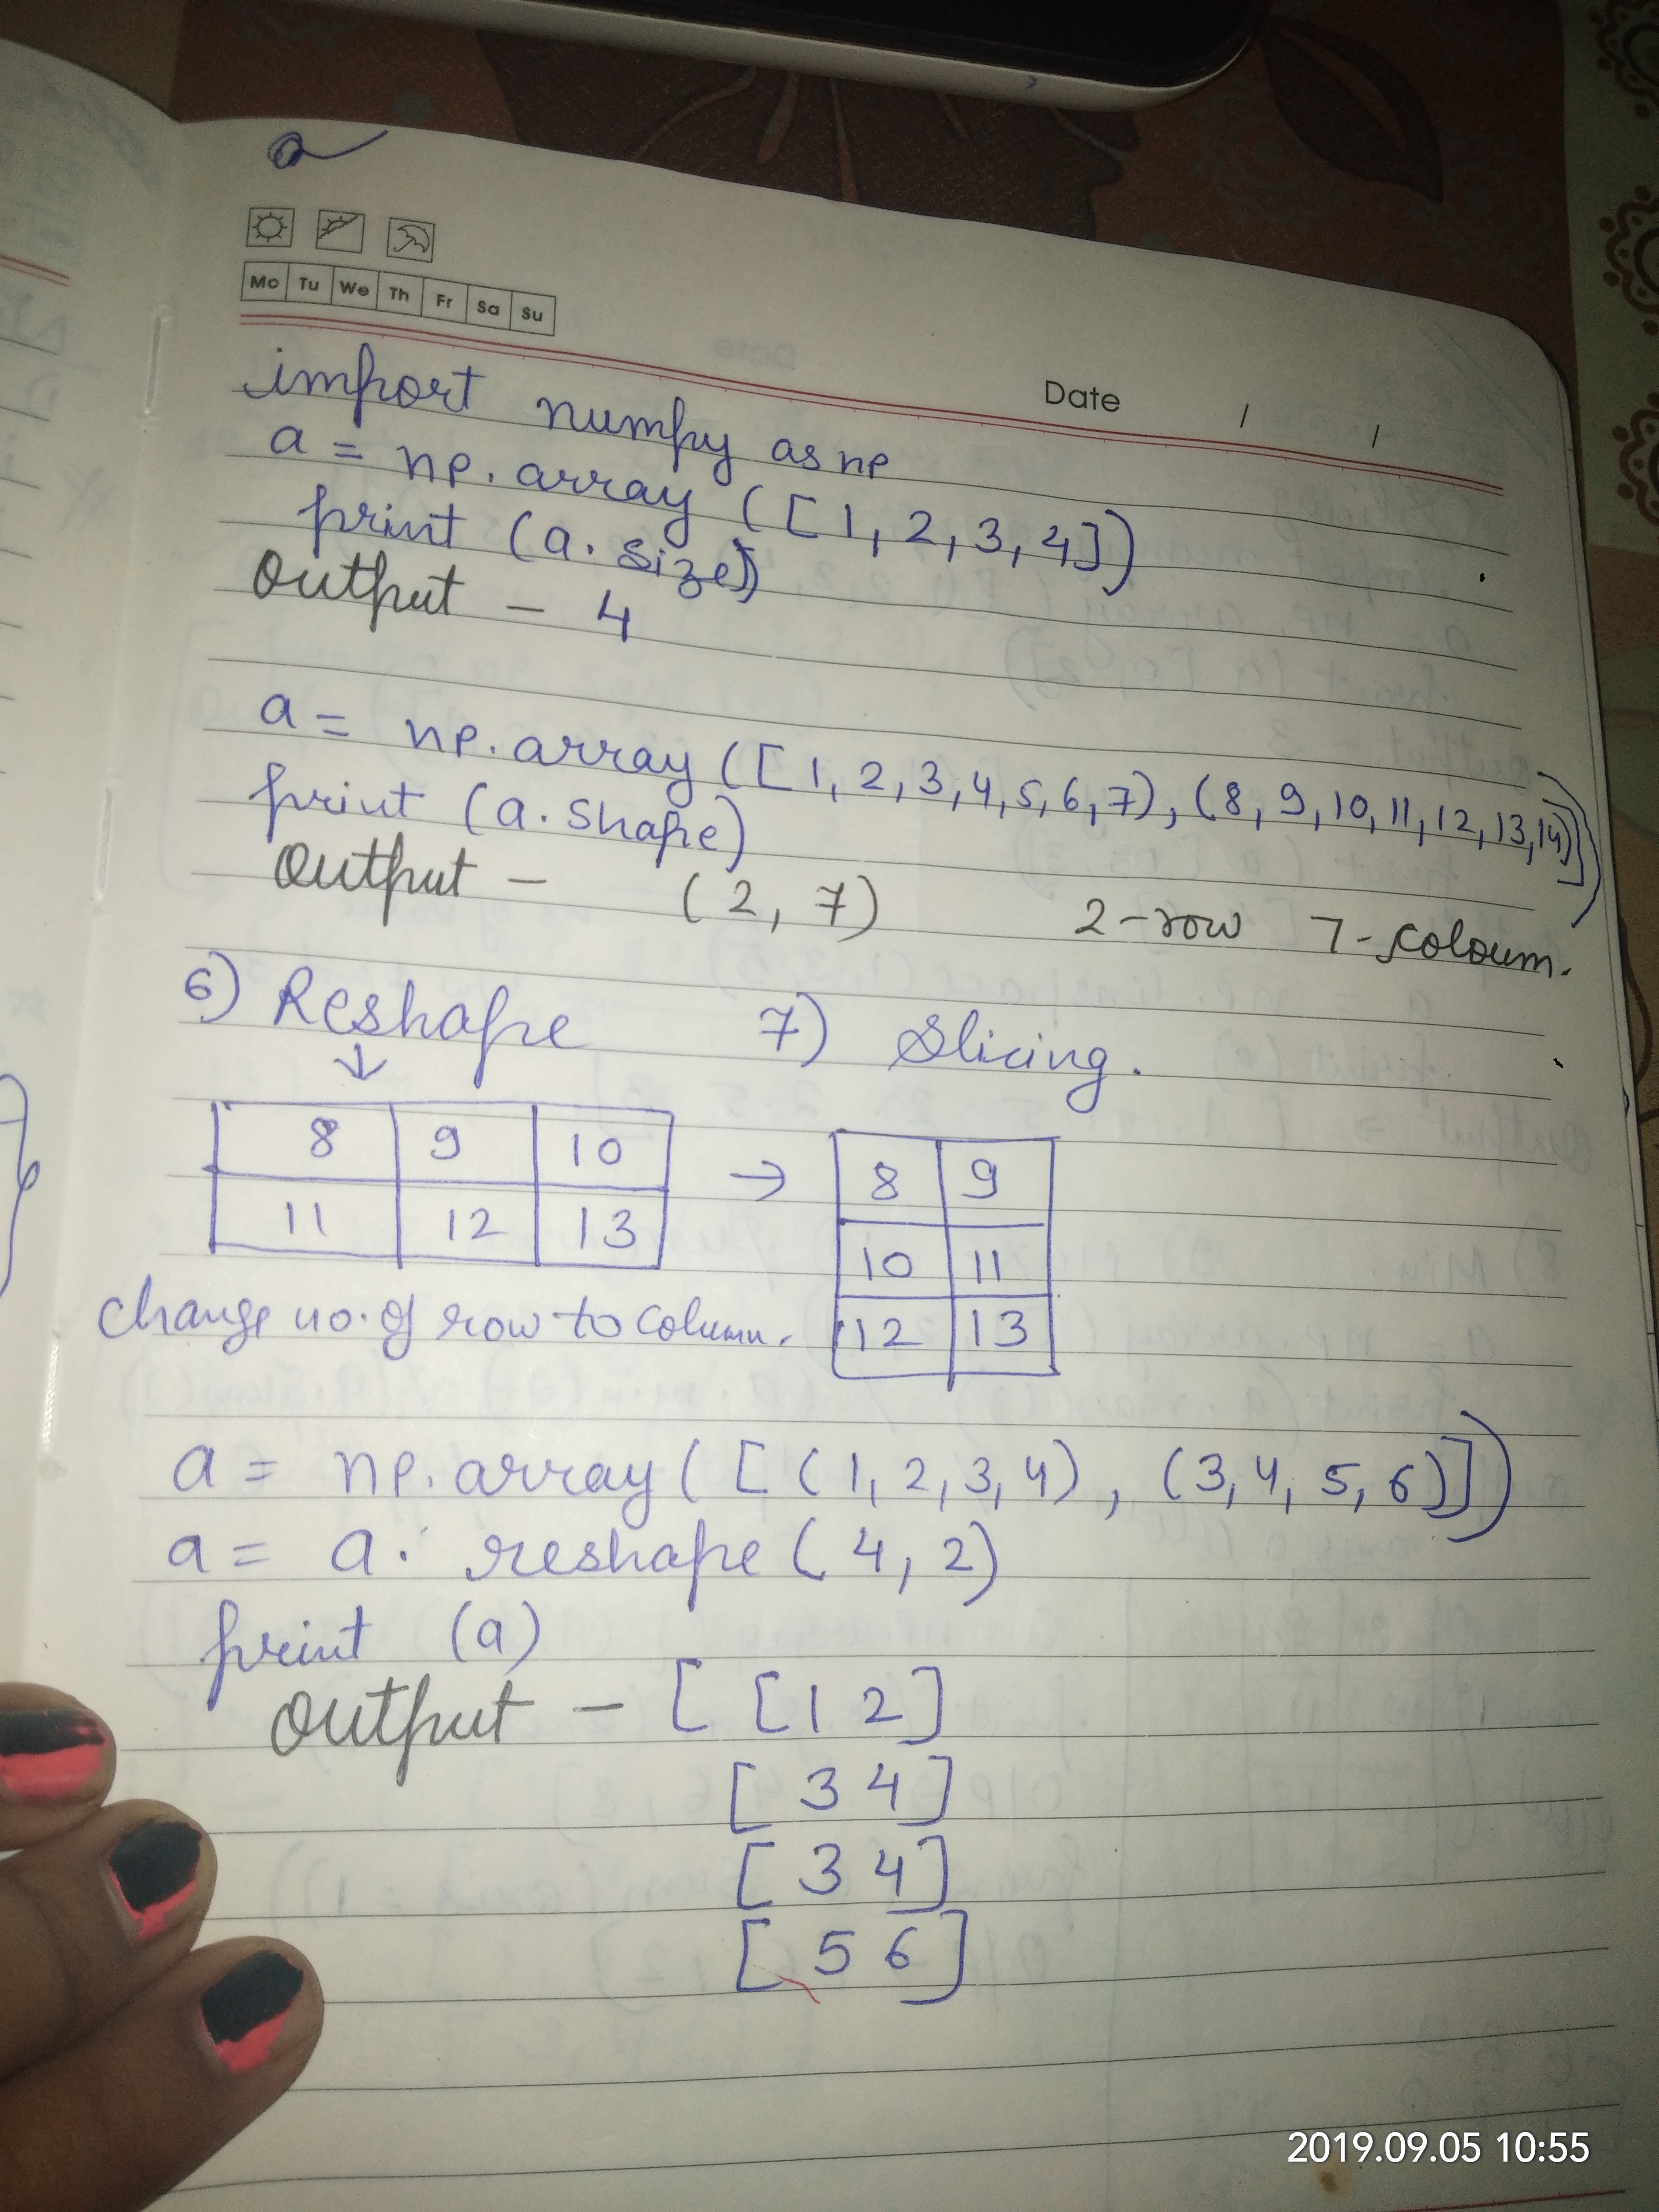 a
Mo Tu We Th Fr Sa Su
Date / /
import numpy as np
a = np.array ([1, 2, 3, 4])
print (a. size)
Output - 4
a = np.array ([1, 2, 3, 4, 5, 6, 7), (8, 9, 10, 11, 12, 13, 14)])
print (a. shape)
Output - (2, 7) 2-row 7-coloum.
6) Reshape 7) Slicing.
↓
8 9 10 → 8 9
11 12 13 10 11
12 13
Change no. of row to column.
a = np.array ( [ (1, 2, 3, 4) , (3, 4, 5, 6)])
a = a. reshape ( 4, 2)
print (a)
Output - [ [1 2]
[ 3 4]
[ 3 4]
[ 5 6]
2019.09.05 10:55